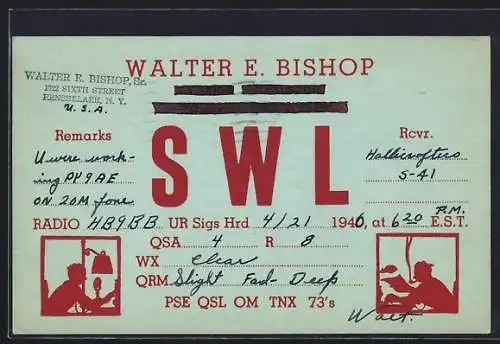 WALTER E. BISHOP
WALTER E. BISHOP, Sr.
1722 SIXTH STREET
RENSSELAER, N. Y.
U. S. A.
SWL
Remarks
U were work-
ing PK9AE
ON 20M fone
Rcvr.
Hallicrafters
S-41
RADIO HB9BB UR Sigs Hrd 4/21 1946, at 6 20 P.M. E.S.T.
QSA 4 R 8
WX Clear
QRM Slight Fad- Deep
PSE QSL OM TNX 73's
Walt.